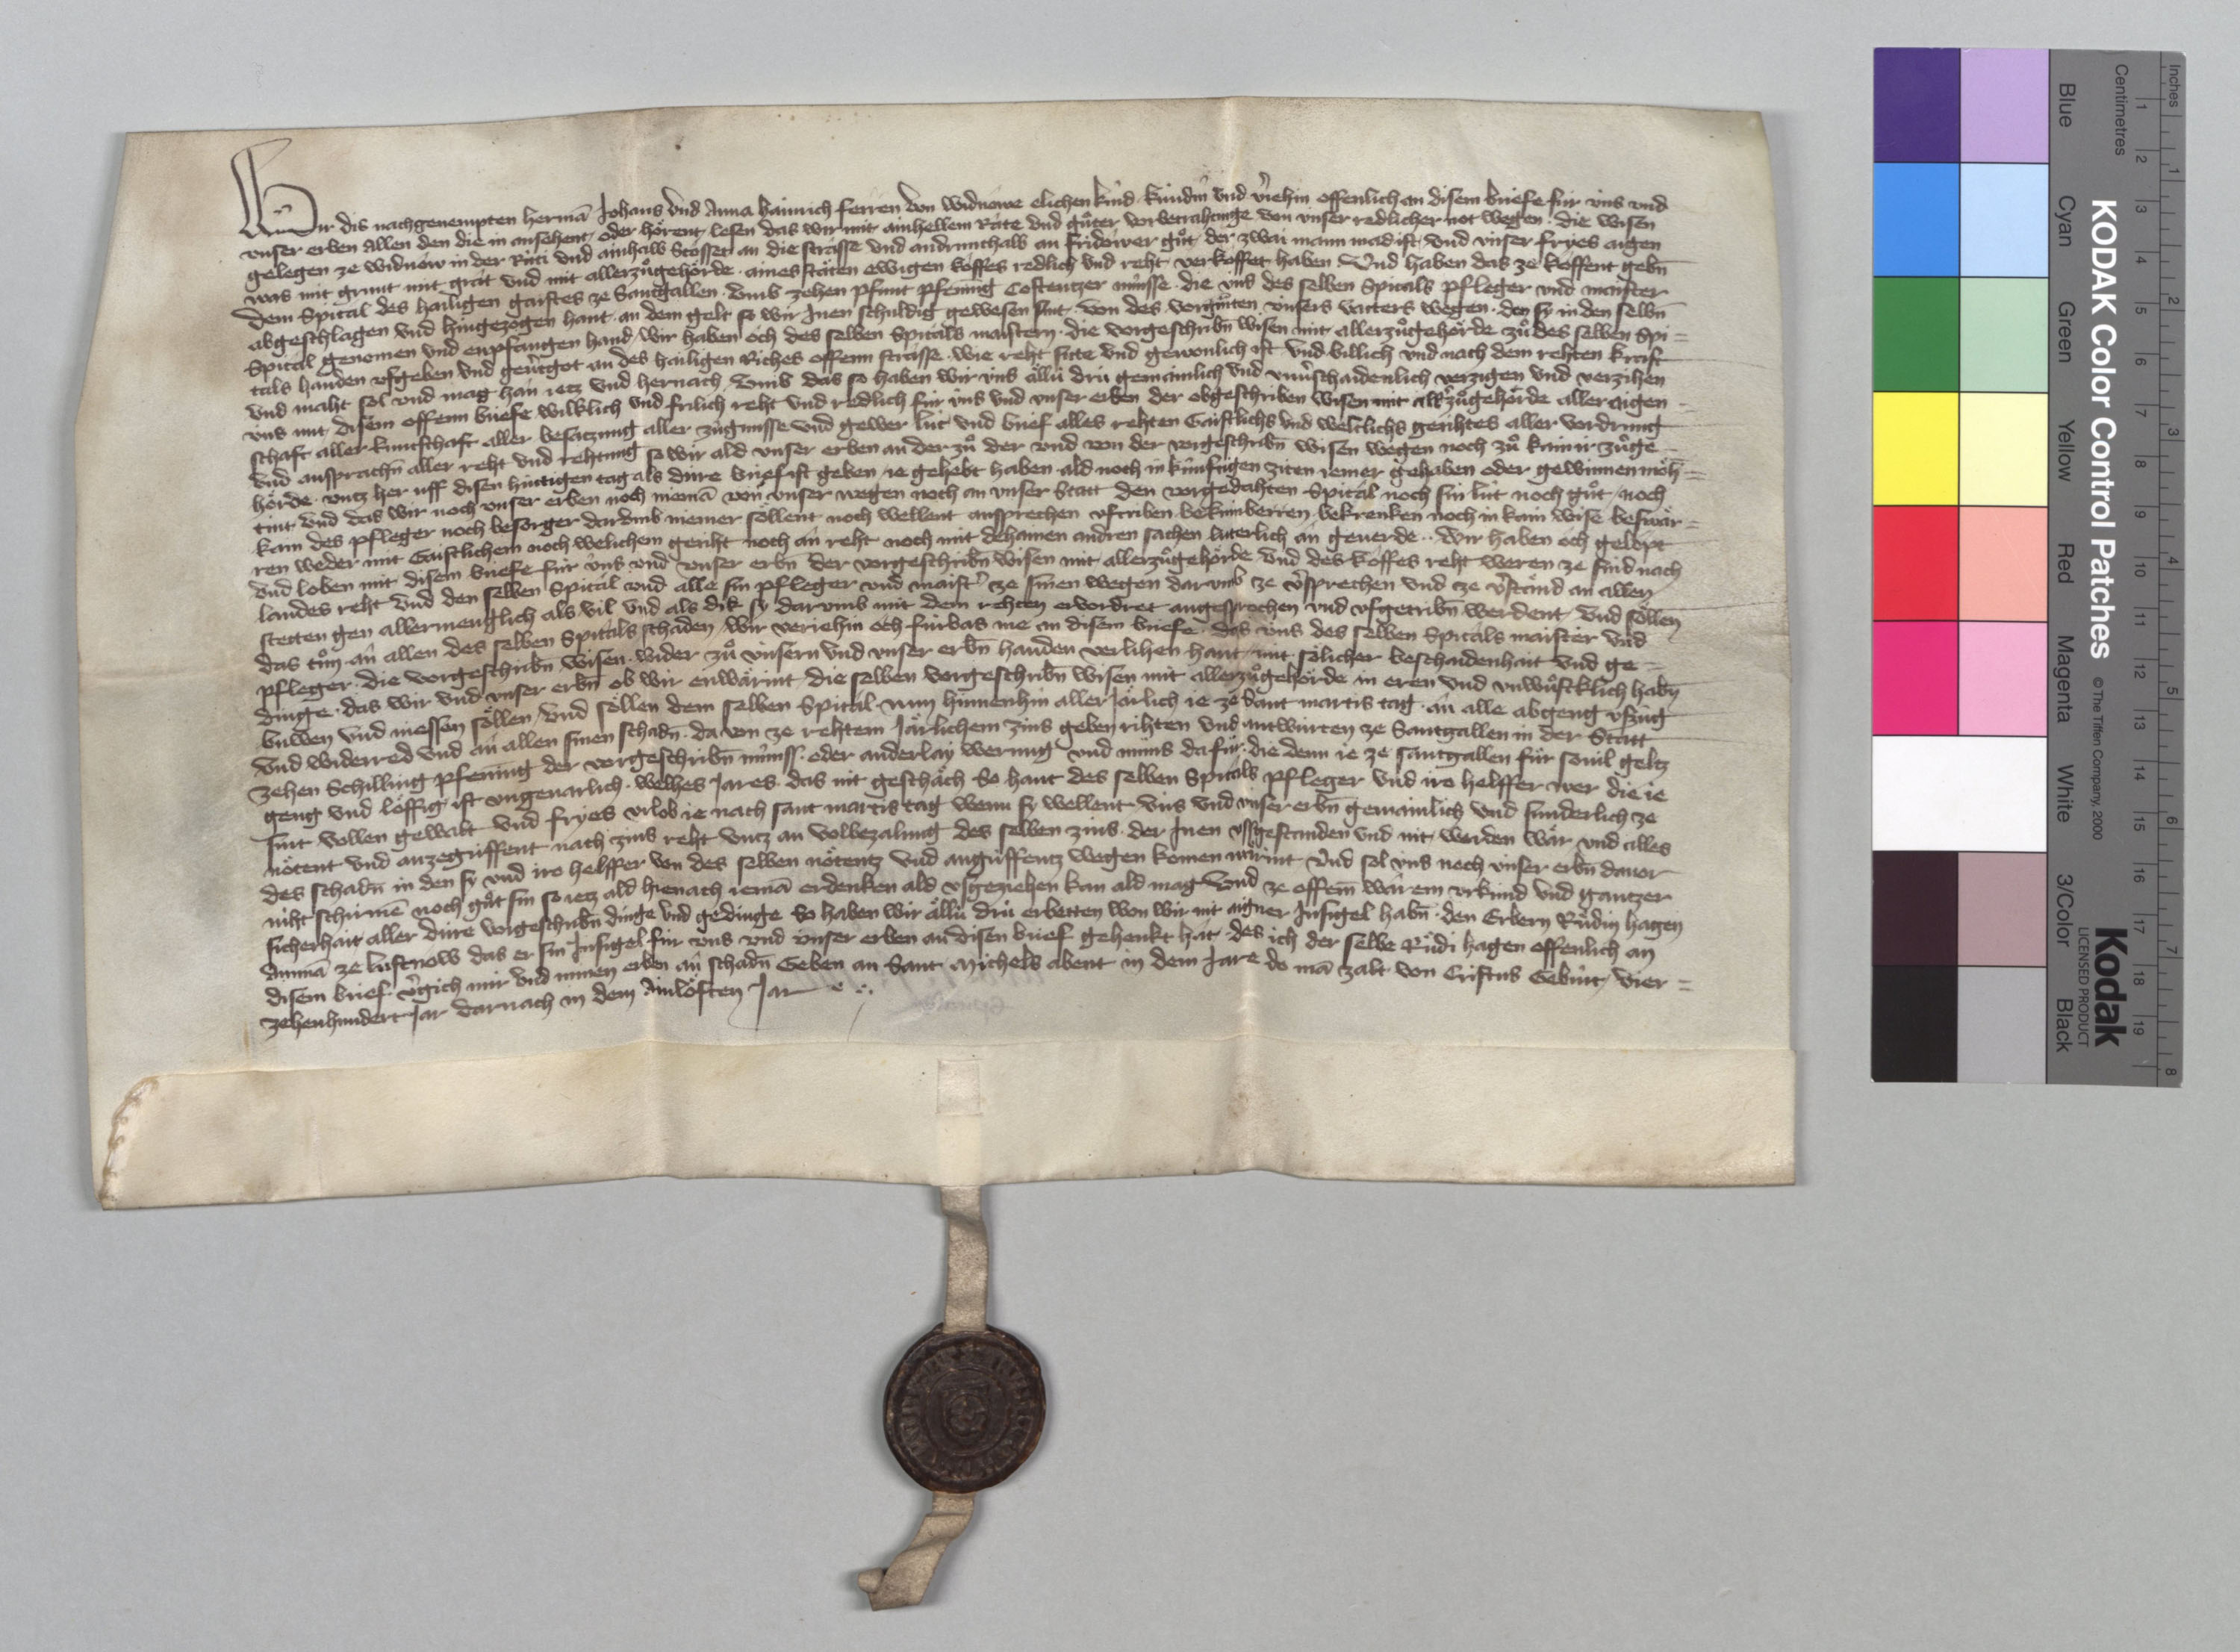 Wir dis nachgenempten Hermā Johans vnd Anna Hainrich Ferren von Widnowe elichen kind kúndin vnd v́iehin offenlich an disem briefe fúr v́ns vnd
vnser erben Allen den die in ansehent, oder hörent lesen das wir mit ainhellem Râte vnd gůter vorbetrahtunge von vnser redlicher not wegen die wisen
gelegen ze Widnow in der Rúti vnd ainhalb Stosset an die strâsse vnd andrunthalb an Fridower gůt, der zwai mann mad ist, vnd vnser fryes aigen
was mit grunt mit grât vnd mit allerzůgehörde aines stäten ewigen koffes redlich vnd reht verkoffet haben Vnd haben das ze koffent gebn̄
dem Spital des hailigen gaistes ze Santgallen vmb zehen pfunt pfenning Costentzer múnsse die v́ns des selben Spitals pfleger vnd maister
abgeschlagen vnd hingezogen hant an dem gelt so wir Jnen schuldig gewesen sint von des vorgn̄ten v́nsers vatters wegen den sy in den selbn̄
Spital genomen vnd enpfangen hand Wir haben och des selben Spitals maistern die vorgeschribn̄ wisen mit allerzůgehörde zů des selben Spi=
tals handen vfgeben vnd geuertgot an des hailigen Riches offenn strâsse wie reht sitte vnd gewonlich ist vnd billich vnd nach dem rehten kraft
vnd maht sol vnd mag hân ietz vnd hernach Vmb das so haben wir v́ns ällú drú gemainlich vnd vnuerschaidenlich verzigen vnd verzihen
v́ns mit disem offenn briefe willklich vnd frilich reht vnd redlich fúr v́ns vnd vnser erben der obgeschriben wisen mit allerzůgehörde aller aigen
schaft aller kuntschaft aller besatzung aller zúgnusse vnd gewer lút vnd brief alles rehten Gaistlichs vnd weltlichs gerihtes aller vordrung
vnd ansprachn̄ aller reht vnd rehtung so wir ald vnser erben an der zů der vnd von der vorgeschribn̄ wisen wegen noch zů kainir zůge=
hörde vntz her uff disen húttigen tag als dirre brief ist geben ie gehebt haben ald noch in kúnftigen ziten iemer gehaben oder gewinnen möh=
tint vnd das wir noch vnser erben noch niemā von vnser wegen noch an vnser Statt den vorgedahten Spital noch sin lút noch gůt, noch
kain des pfleger noch besorger darumb niemer söllent noch wellent ansprechen vftriben bekúmberren bekrenken noch in kain wise beswär=
ren weder mit Gaistlichem noch weltlichem geriht noch ân reht noch mit dehainen andren sachen luterlich ân geuerde Wir haben och gelopt
vnd loben mit disem briefe fúr v́ns vnd vnser erbn̄ der vorgeschribn̄ wisen mit allerzůgehörde vnd des koffes reht weren ze sind nach
landes reht vnd den selben Spital vnd alle sin pfleger vnd maister ze sinen wegen darvmb ze v́sprechen vnd ze v́stând an allen
stetten gen allermenglich als vil vnd als dik sy darvmb mit dem rehten ervordret angesprochen vnd vfgetribn̄ werdent vnd söllen
das tůn ân allen des selben Spitals schaden Wir veriehin och fúrbas me an disem briefe das v́ns des selben Spitals maister vnd
pfleger die vorgeschribn̄ wisen wider zů vnsern vnd vnser erbn̄ handen verlihen hant mit sölicher beschaidenhait vnd ge=
dinge das wir vnd vnser erbn̄ ob wir enwärint die selben vorgeschribn̄ wisen mit allerzůgehörde in eren vnd vnwůstklich habn̄
buwen vnd niessen söllen vnd söllen dem selben Spital nun hinnenhin aller Järlich ie ze sant martis tag ân alle abgeng vfzúg
vnd widerred vnd ân allen sinen schadn̄ da von ze rehtem Järlichem zins geben rihten vnd antwúrten ze Santgallen in der Statt
zehen Schilling pfenning der vorgeschribn̄ múnss oder anderlay werung vnd múns dafúr die denn ie ze santgallen fúr souil geltz
geng vnd löffig ist vngeuarlich Welhes Jares das nit geschäch So hant des selben Spitals pfleger vnd iro helffer wer die ie
sint vollen gewalt vnd fryes vrlob ie nach sant martis tag wenn sy wellent v́ns vnd vnser erbn̄ gemainlich vnd sunderlich ze
nötent vnd anzegriffent nach zins reht vntz an volbezalung des selben zins der Jnen vssgestanden vnd nit worden wär vnd alles
des schadn̄ in den sy vnd iro helffer von des selben nötentz vnd angriffentz wegen komen wärint Vnd sol v́ns noch vnser erbn̄ dauor
niht schirmē noch gůt sin so ietz ald hienach iemā erdenken ald vsgeziehen kan ald mag Vnd ze offem wârem vrkúnd vnd gantzer
sicherhait aller dirre vorgeschribn̄ dinge vnd gedinge So haben wir ällú drú erbetten won wir nit aigner Jnsigel habn̄ den Erbern Růdin Hagen
Ammā ze Lustnow das er sin Jnsigel fúr v́ns vnd vnser erben an disen brief gehenkt hat des ich der selbe Růdi Hagen offenlich an
disem brief v́gich mir vnd minen erben ân schadn̄ Geben an Sant Michels abent in dem Jare do mā zalt von Cristus Gebúrt, vier=
zehenhundert Jar darnach in dem Ainlöften Jar
KODAK Color Control Patches © The Tiffen Company, 2000
Kodak
LICENSED PRODUCT
Inches 1 2 3 4 5 6 7 8
Centimetres 1 2 3 4 5 6 7 8 9 10 11 12 13 14 15 16 17 18 19
Blue Cyan Green Yellow Red Magenta White 3/Color Black